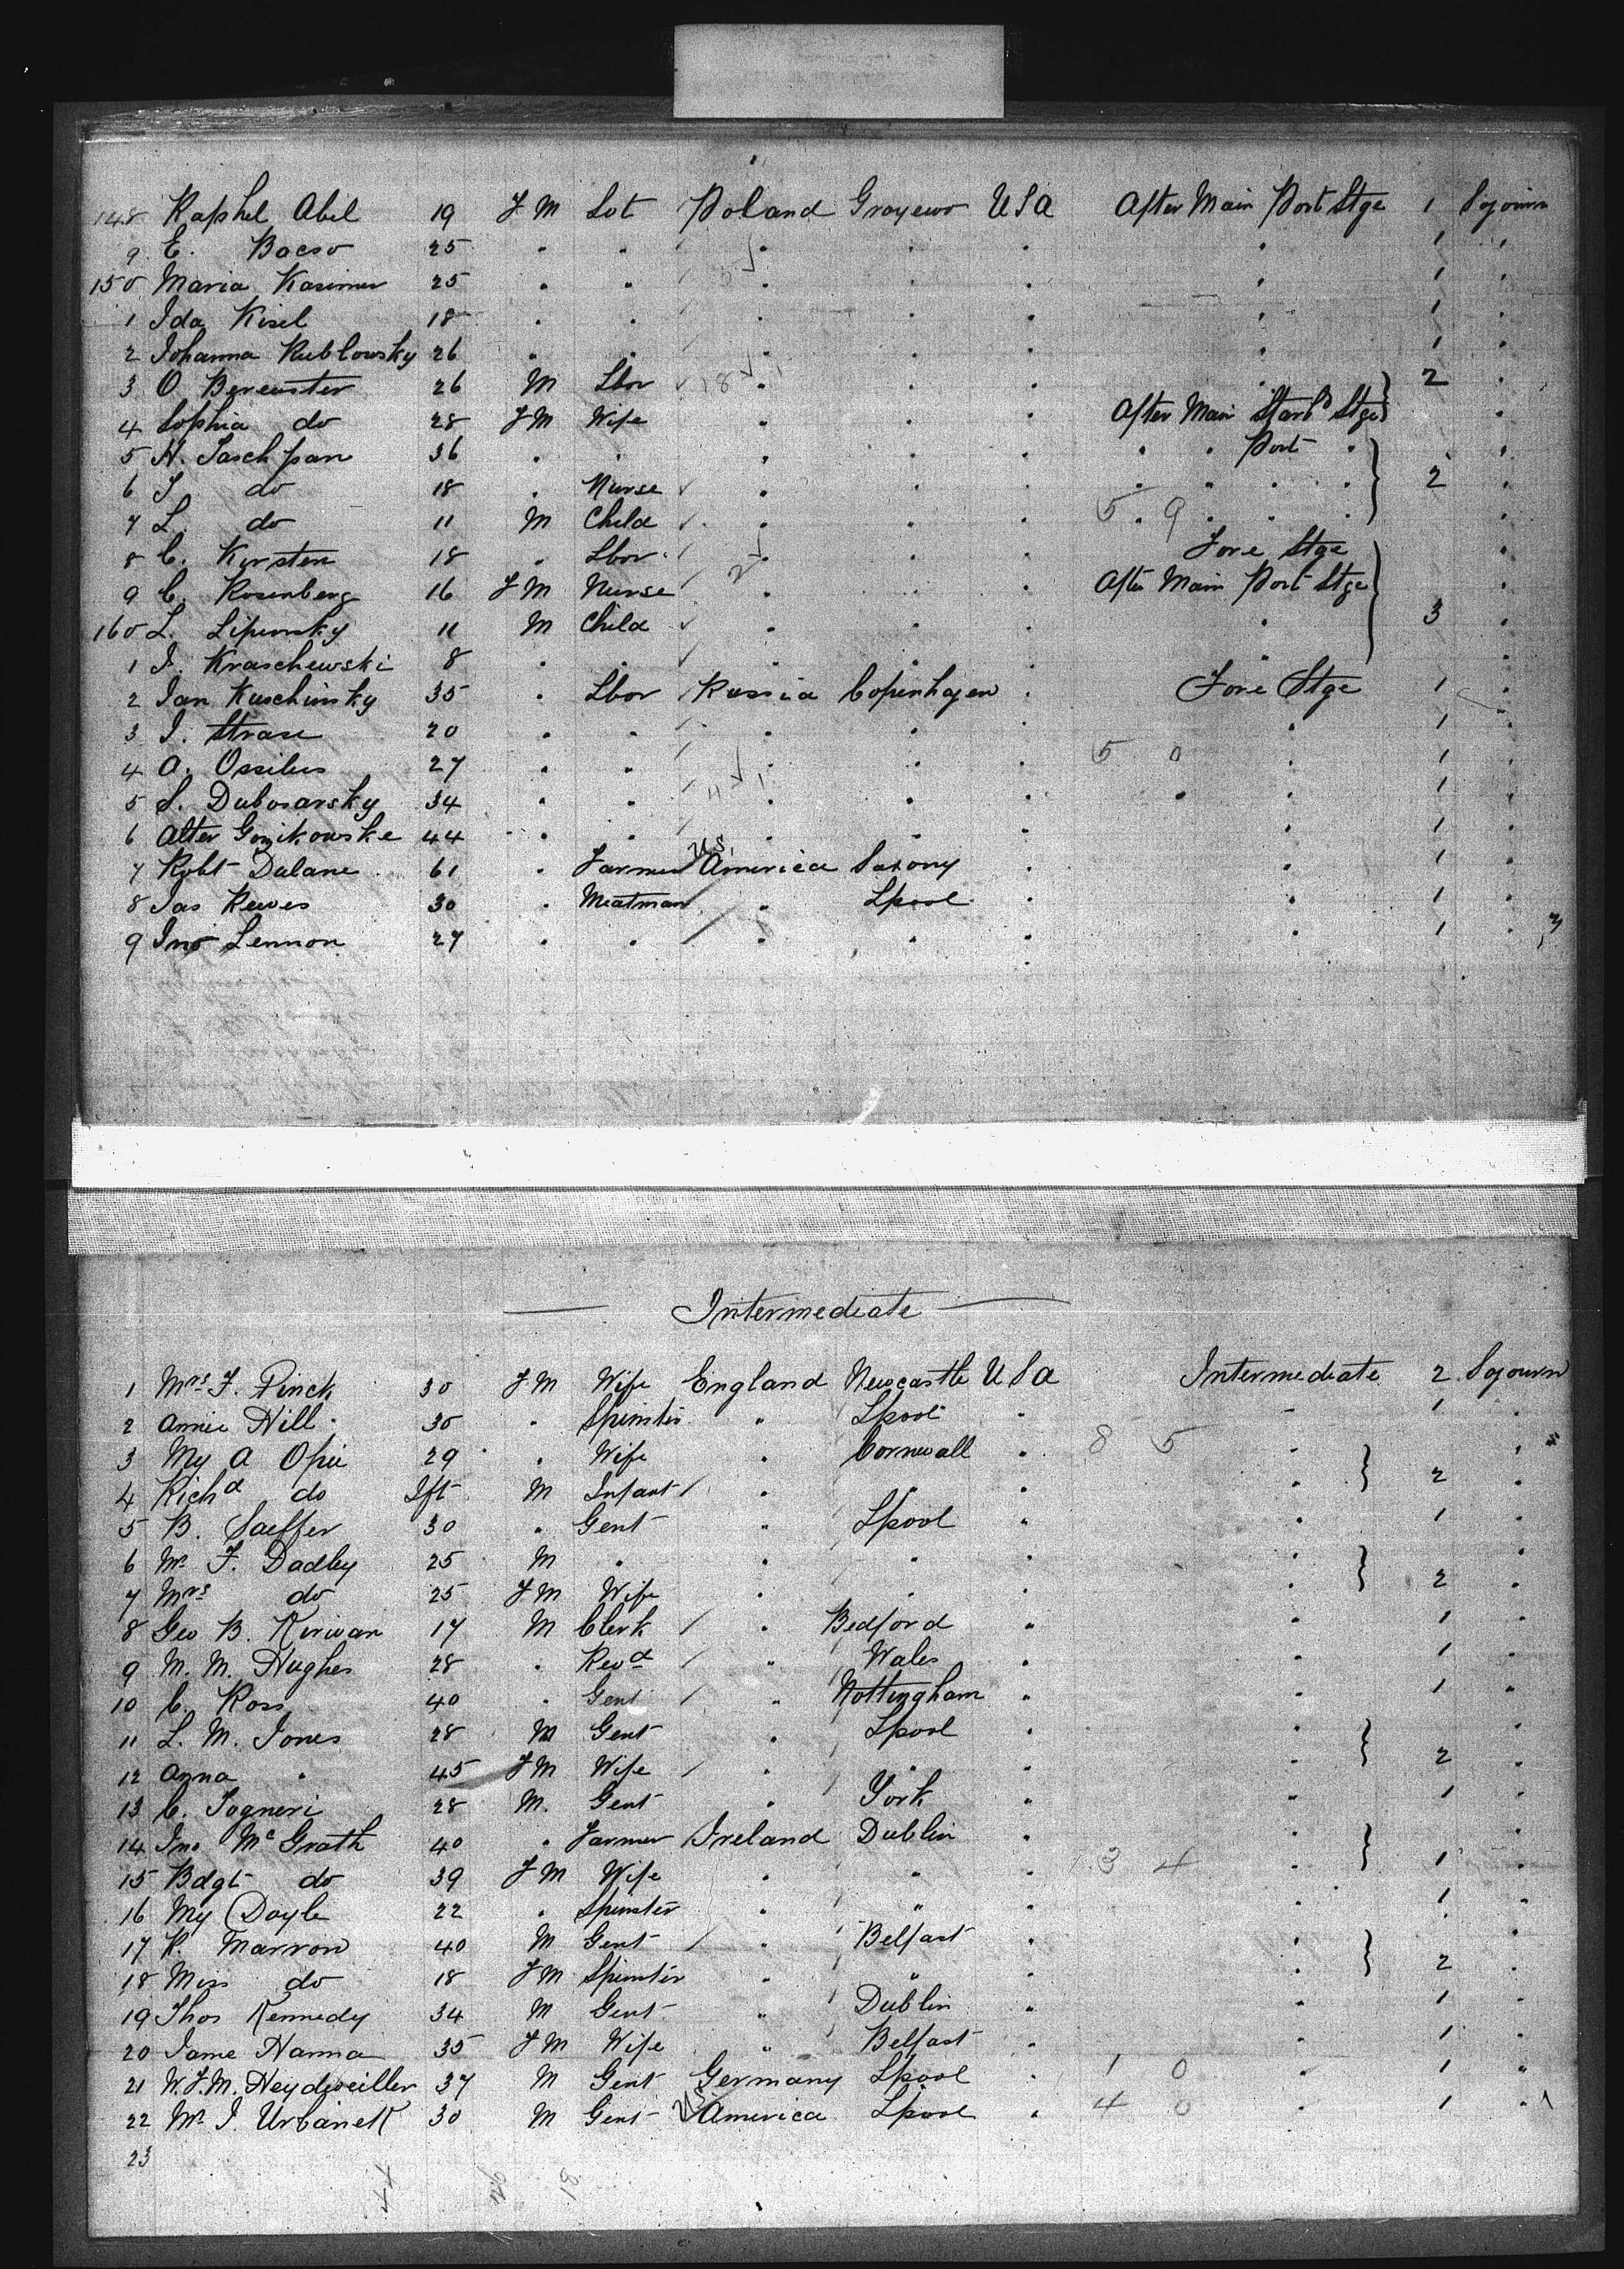 148 Raphel Abel 19 F M Sot Poland Grayewo U S A After Main Port Stge 1 Sojourn
9 E. Bacso 25 " " " " " " 1 "
150 Maria Kasimer 25 " " " " " " 1 "
1 Ida Kisel 18 " " " " " " 1 "
2 Johanna Kublowsky 26 " " " " " " 1 "
3 O Berewster 26 M Lbor " " " " } 2 "
4 Sophia do 28 F M Wife " " " After Main Starbd Stge "
5 H. Taschpan 36 " " " " " " " Port " "
6 J do 18 " Nurse " " " " " " " } 2 "
7 L. do 11 M Child " " " 5 " 9 " " " "
8 C. Kirsten 18 " Lbor " " " Fore Stge "
9 C. Rosenberg 16 F M Nurse " " " After Main Port Stge "
160 L. Lipinsky 11 M Child " " " " } 3 "
1 I. Kraschewski 8 " " " " " " "
2 Jan Kuschinsky 35 " Lbor Russia Copenhagen " Fore Stge 1 "
3 J. Strase 20 " " " " " 1 "
4 A. Ossilus 27 " " " " " 5 0 " 1 "
5 S. Dubosarsky 34 " " " " " " 1 "
6 Alter Gozikowske 44 " " " " " " 1 "
7 Robt Dulane 61 " Farmer U.S. America Saxony " " 1 "
8 Jas Reeves 30 " Meatman " Lpool " " 1 "
9 Jno Lennon 27 " " " " " " 1 " 3
Intermediate
1 Mrs F. Pinck 30 F M Wife England Newcastle U S A Intermediate 2 Sojourn
2 Annie Hill 30 " Spinster " Lpool " " 1 "
3 My A Opie 29 " Wife " Cornwall " 8 5 " "
4 Richd do Ift M Infant " " " " } 2 "
5 B. Saeffer 30 " Gent " Lpool " " 1 "
6 Mr F. Dadley 25 M " " " " " "
7 Mrs do 25 F M Wife " " " " } 2 "
8 Geo B. Kirwan 17 M Clerk " Bedford " " 1 "
9 M. M. Hughes 28 " Revd " Wales " " 1 "
10 C. Ross 40 " Gent " Nottingham " " 1 "
11 L. M. Jones 28 M Gent " Lpool " " "
12 Anna " 45 F M Wife " " " " } 2 "
13 C. Togneri 28 M. Gent " York " " 1 "
14 Jno McGrath 40 " Farmer Ireland Dublin " " "
15 Bdgt do 39 F M Wife " " " 3 4 " } 1 "
16 My Doyle 22 " Spinster " " " " 1 "
17 K. Marron 40 M Gent " Belfast " " "
18 Miss do 18 F M Spinster " " " " } 2 "
19 Thos Kennedy 34 M Gent " Dublin " " 1 "
20 Jame Hanna 35 F M Wife " Belfast " " 1 "
21 W. F. M. Heydweiller 37 M Gent Germany Lpool " 1 0 " 1 "
22 Mr J. Urbanek 30 M Gent U.S. America Lpool " 4 0 " 1 " 1
23
44 26 18